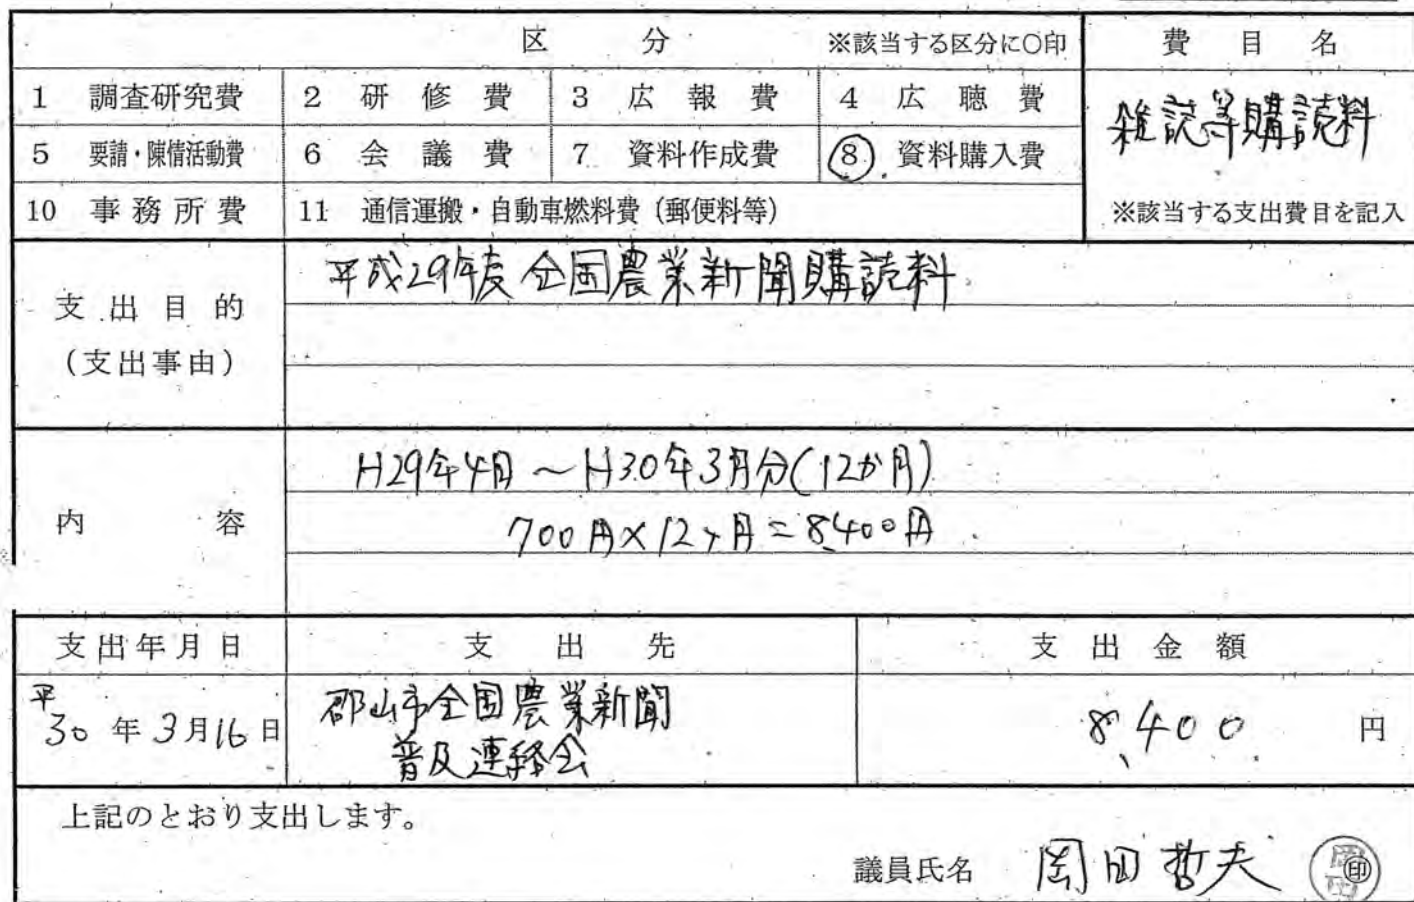 区 分 ※該当する区分に○印 費目名
1 調査研究費 2 研修費 3 広報費 4 広聴費
雑誌等購読料
5 要請・陳情活動費 6 会議費 7 資料作成費 8 資料購入費
10 事務所費 11 通信運搬・自動車燃料費(郵便料等) ※該当する支出費目を記入
支出目的
(支出事由)
平成29年度 全国農業新聞購読料
内容
H29年4月～H30年3月分(12か月)
700円×12ヶ月=8,400円
支出年月日 支出先 支出金額
平30年3月16日
郡山市全国農業新聞
普及連絡会
8,400円
上記のとおり支出します。
議員氏名 岡田哲夫 ㊞